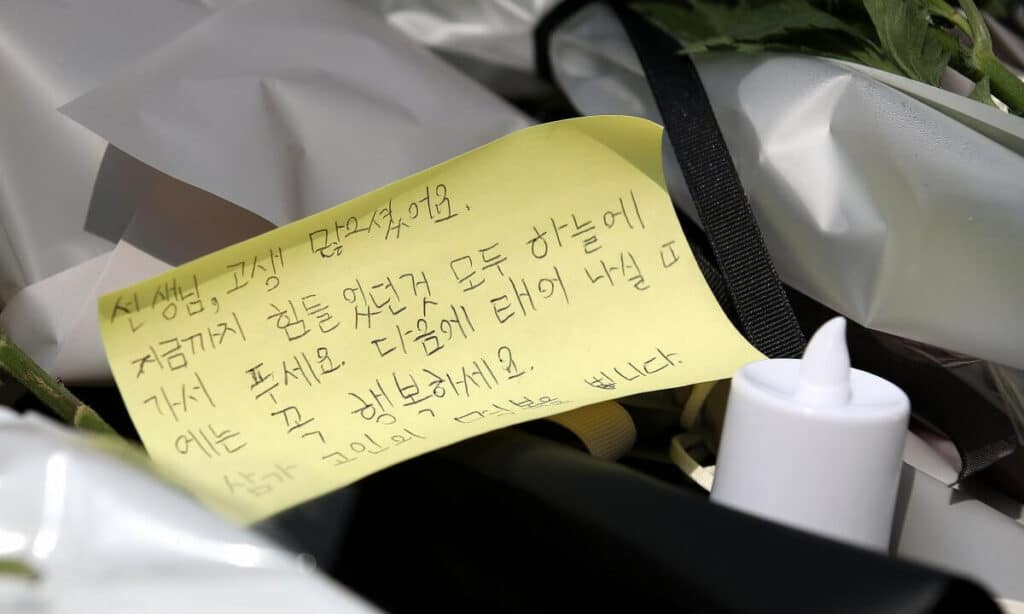 선생님, 고생 많으셨어요.
지금까지 힘들었던것 모두 하늘에
가서 푸세요. 다음에 태어 나실 때
에는 꼭 행복하세요.
삼가 고인의 명복을 빕니다.